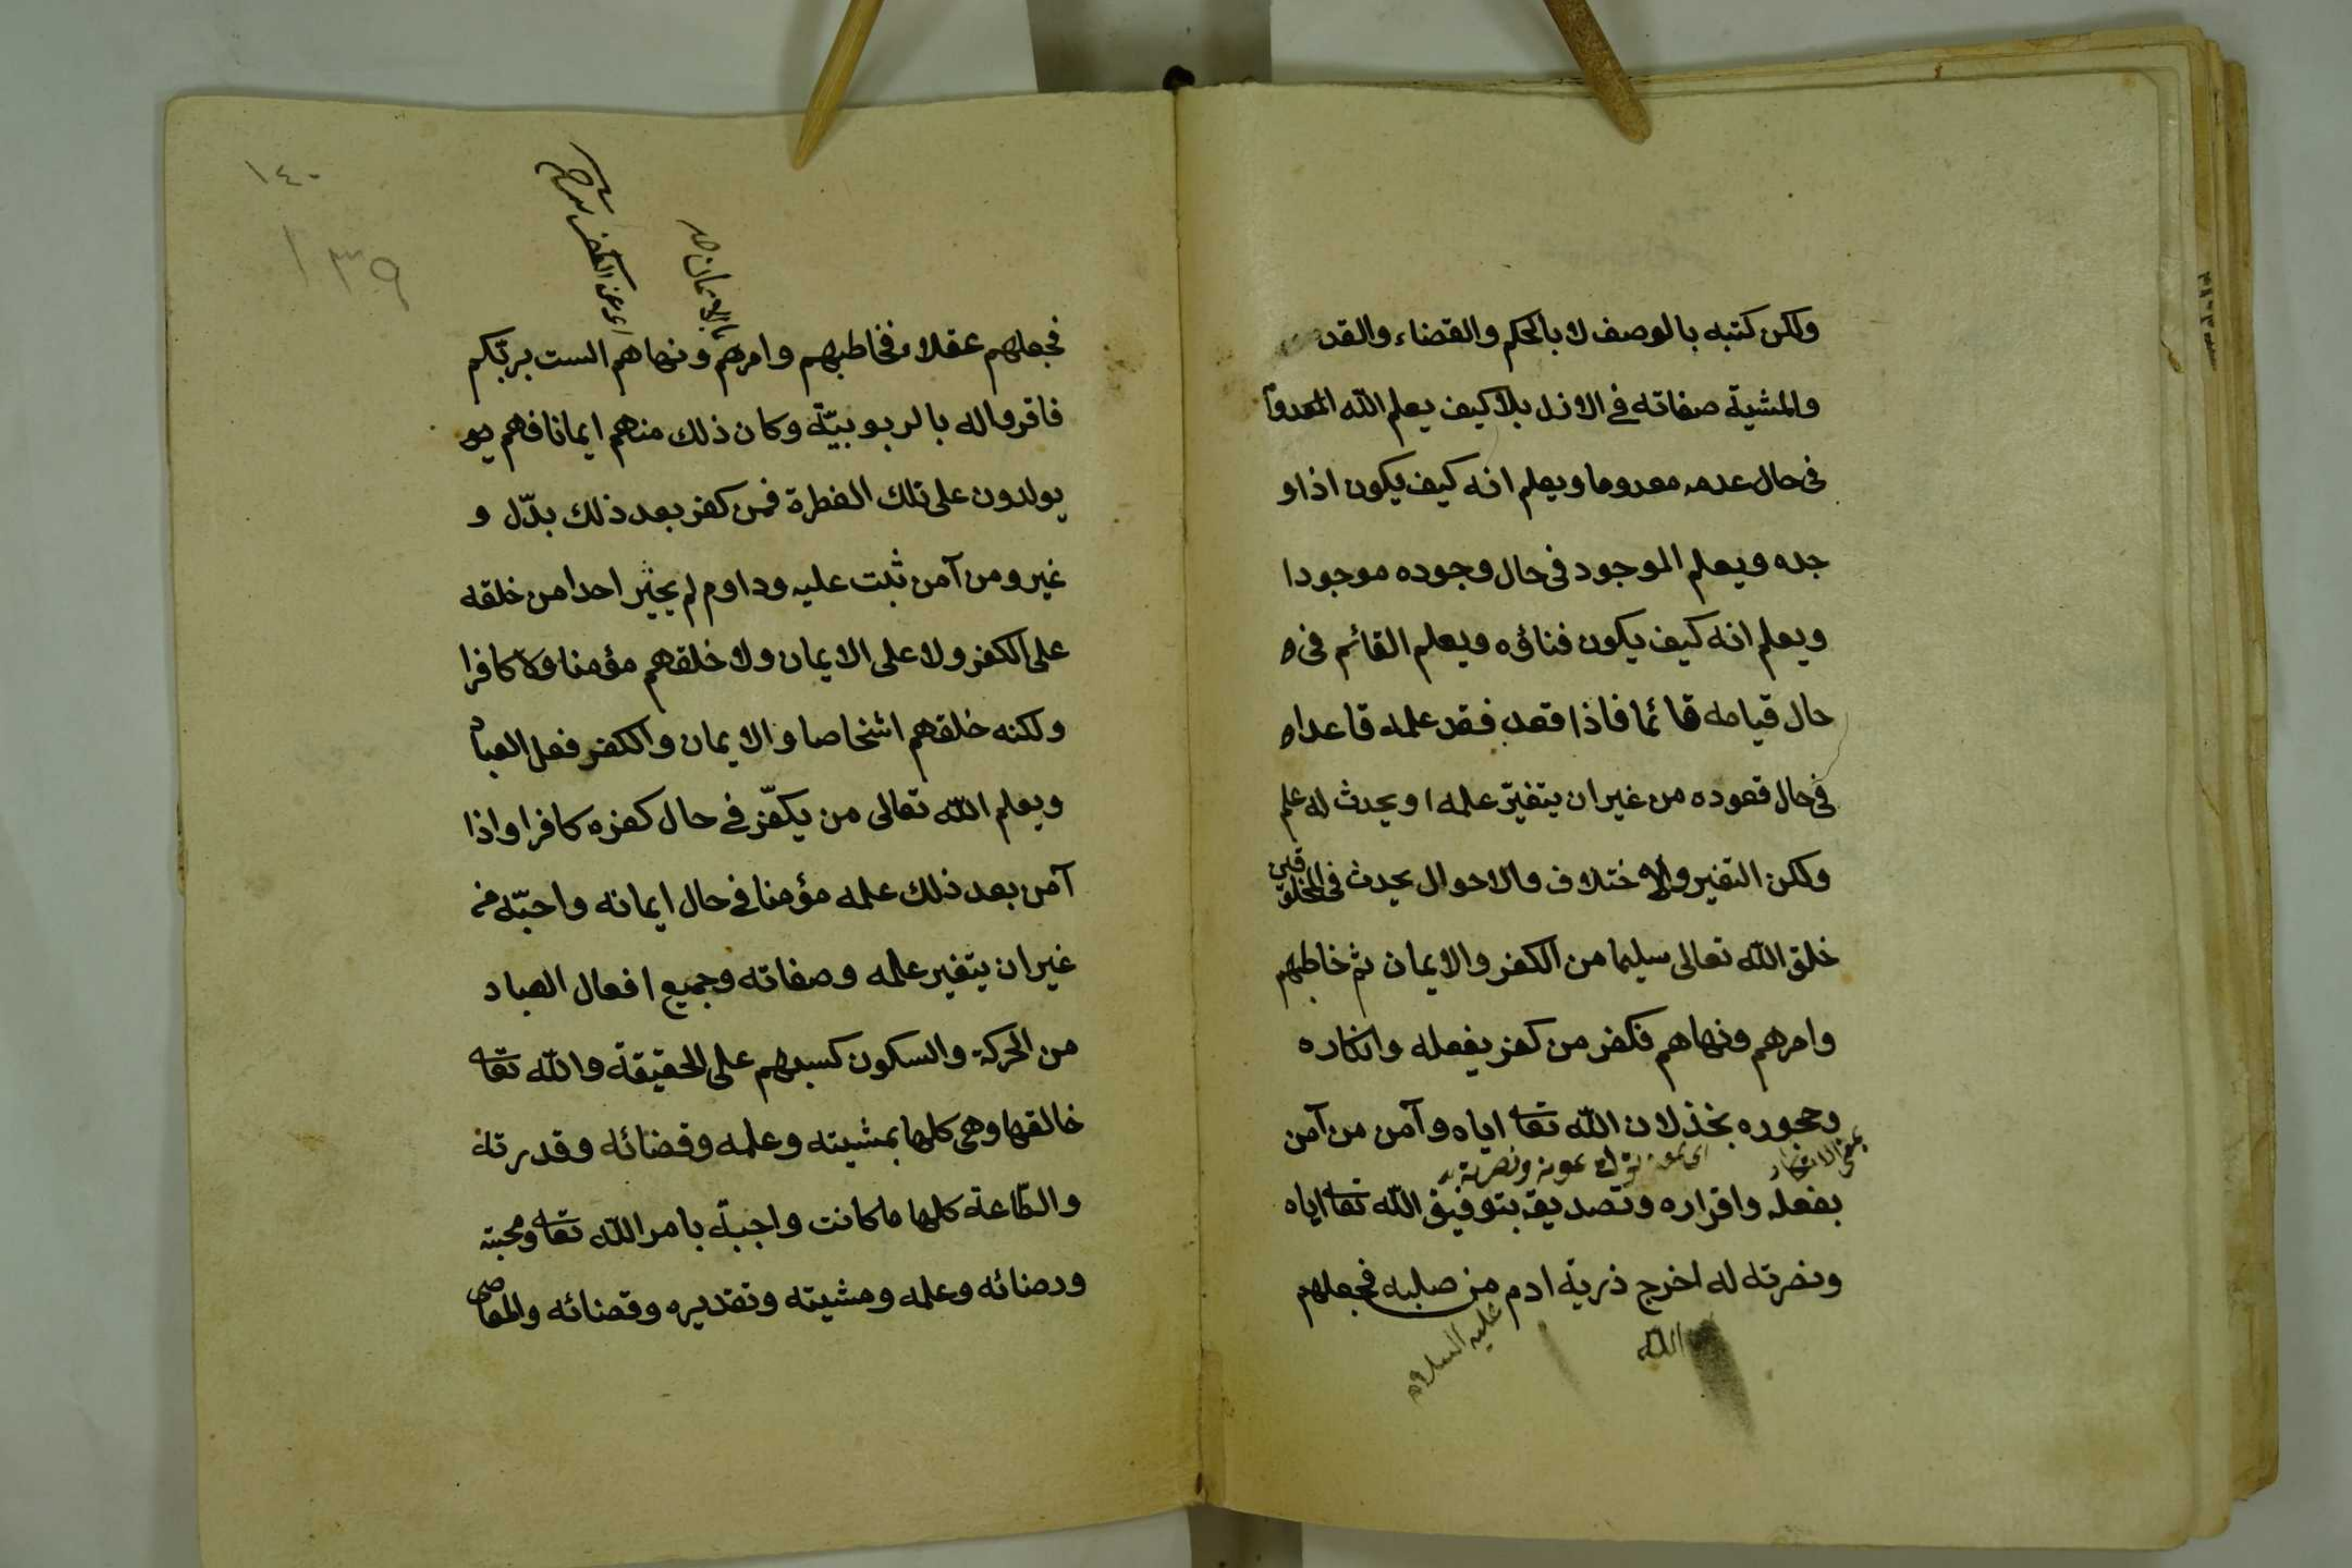 ولكن كتبه بالوصف لا بالحكم والقضاء والقد
والمشية صفاته في الازل بلا كيف يعلم الله المعدوم
في حال عدمه معدوما ويعلم انه كيف يكون اذا او
جده ويعلم الموجود في حال وجوده موجودا
ويعلم انه كيف يكون فناؤه ويعلم القائم في
حال قيامه قائما فاذا قعد فقد علمه قاعدا
في حال قعوده من غير ان يتغير علمه او يحدث له علم
ولكن التغير والاختلاف والاحوال يحدث في المخلوقين
خلق الله تعالى سليما من الكفر والايمان ثم خاطبهم
وامرهم ونهاهم فكفر من كفر بفعله وانكاره
وجحوره بخذلان الله تعا اياه وآمن من آمن
بفعله واقراره وتصديقه بتوفيق الله تعا اياه
ونصرته له اخرج ذرية ادم من صلبه فجعلهم
الله
عليه السلام
١٤٠
١٣٩
بالايمان
اي عن الكفر
فجعلهم عقلاء فخاطبهم وامرهم ونهاهم الست بربّكم
فاقروا له بالربوبيّة وكان ذلك منهم ايمانا فهم يو
يولدون على تلك الفطرة فمن كفر بعد ذلك بدّل و
غير ومن آمن ثبت عليه وداوم لم يجبر احدا من خلقه
على الكفر ولا على الايمان ولا خلقهم مؤمنا ولا كافرا
ولكنه خلقهم اشخاصا والايمان والكفر فعل العباد
ويعلم الله تعالى من يكفّر في حال كفره كافرا واذا
آمن بعد ذلك علمه مؤمنا في حال ايمانه واحبّه من
غير ان يتغير علمه وصفاته وجميع افعال العباد
من الحركة والسكون كسبهم على الحقيقة والله تعا
خالقها وهي كلها بمشيته وعلمه وقضائه وقدرته
والطّاعة كلها ما كانت واجبة بامر الله تعا ومحبته
ورضائه وعلمه ومشيته وتقديره وقضائه والمعاصى